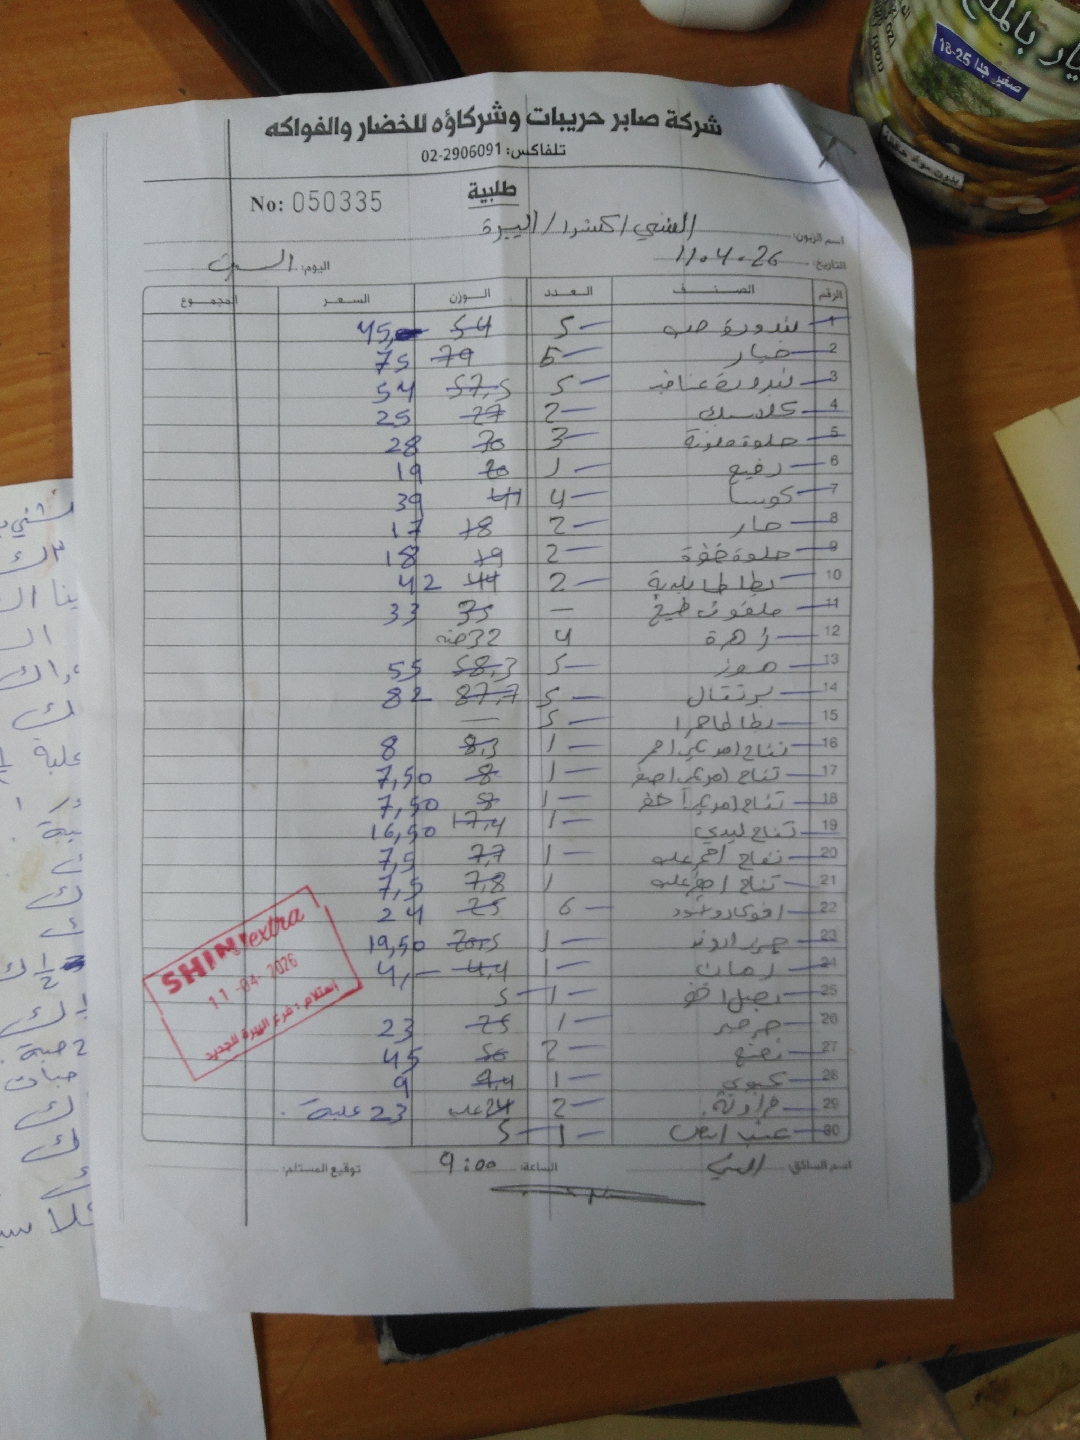 شركة صابر حريبات وشركاؤه للخضار والفواكه
تلفاكس: 02-2906091
طلبية
No: 050335
اسم الزبون: الشني اكسترا / البيرة
التاريخ: 11.4.26 اليوم: السبت
الرقم الصنف العدد الوزن السعر المجموع
1 بندورة 5 54 45
2 خيار 79 75
3 بندورة عناقيد 5 57,5 54
4 كلاسيك 2 27 25
5 حلوة ملونة 3 30 28
6 رفيع 1 20 19
7 كوسا 4 41 39
8 حار 2 18 17
9 حلوة 2 19 18
10 بطاطا بلدية 2 44 42
11 ملفوف طبيخ — 35 33
12 زهرة 4 32 حبة
13 موز 5 58,3 55
14 برتقال 5 87,7 82
15 بطاطا حمرا 5 —
16 تفاح امريكي احمر 1 8,3 8
17 تفاح امريكي اصفر 1 8 7,50
18 تفاح امريكي اخضر 1 8 7,50
19 تفاح ليدي 1 17,4 16,50
20 تفاح علبه 1 7,7 7,5
21 تفاح علبه 1 7,8 7,5
22 افوكادو 6 25 24
23 1 20,5 19,50
24 رمان 1 4,4 4,—
25 بصل اخضر 1 5
26 جرجير 1 25 23
27 نعنع 2 50 45
28 كيوي 1 9,4 9
29 فراولة 2 24 علب 23 علبة
30 عنب ابيض 1 5
اسم السائق: الساعة: 9:00 توقيع المستلم:
SHINI extra
11-04-2026
إستلام: فرع البيرة الجديد
صغير جدا 18-25
بدون مواد حافظة
علبة